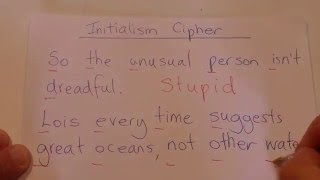 Initialism Cipher
So the unusual person isn't
dreadful. Stupid
Lois every time suggests
great oceans, not other wate